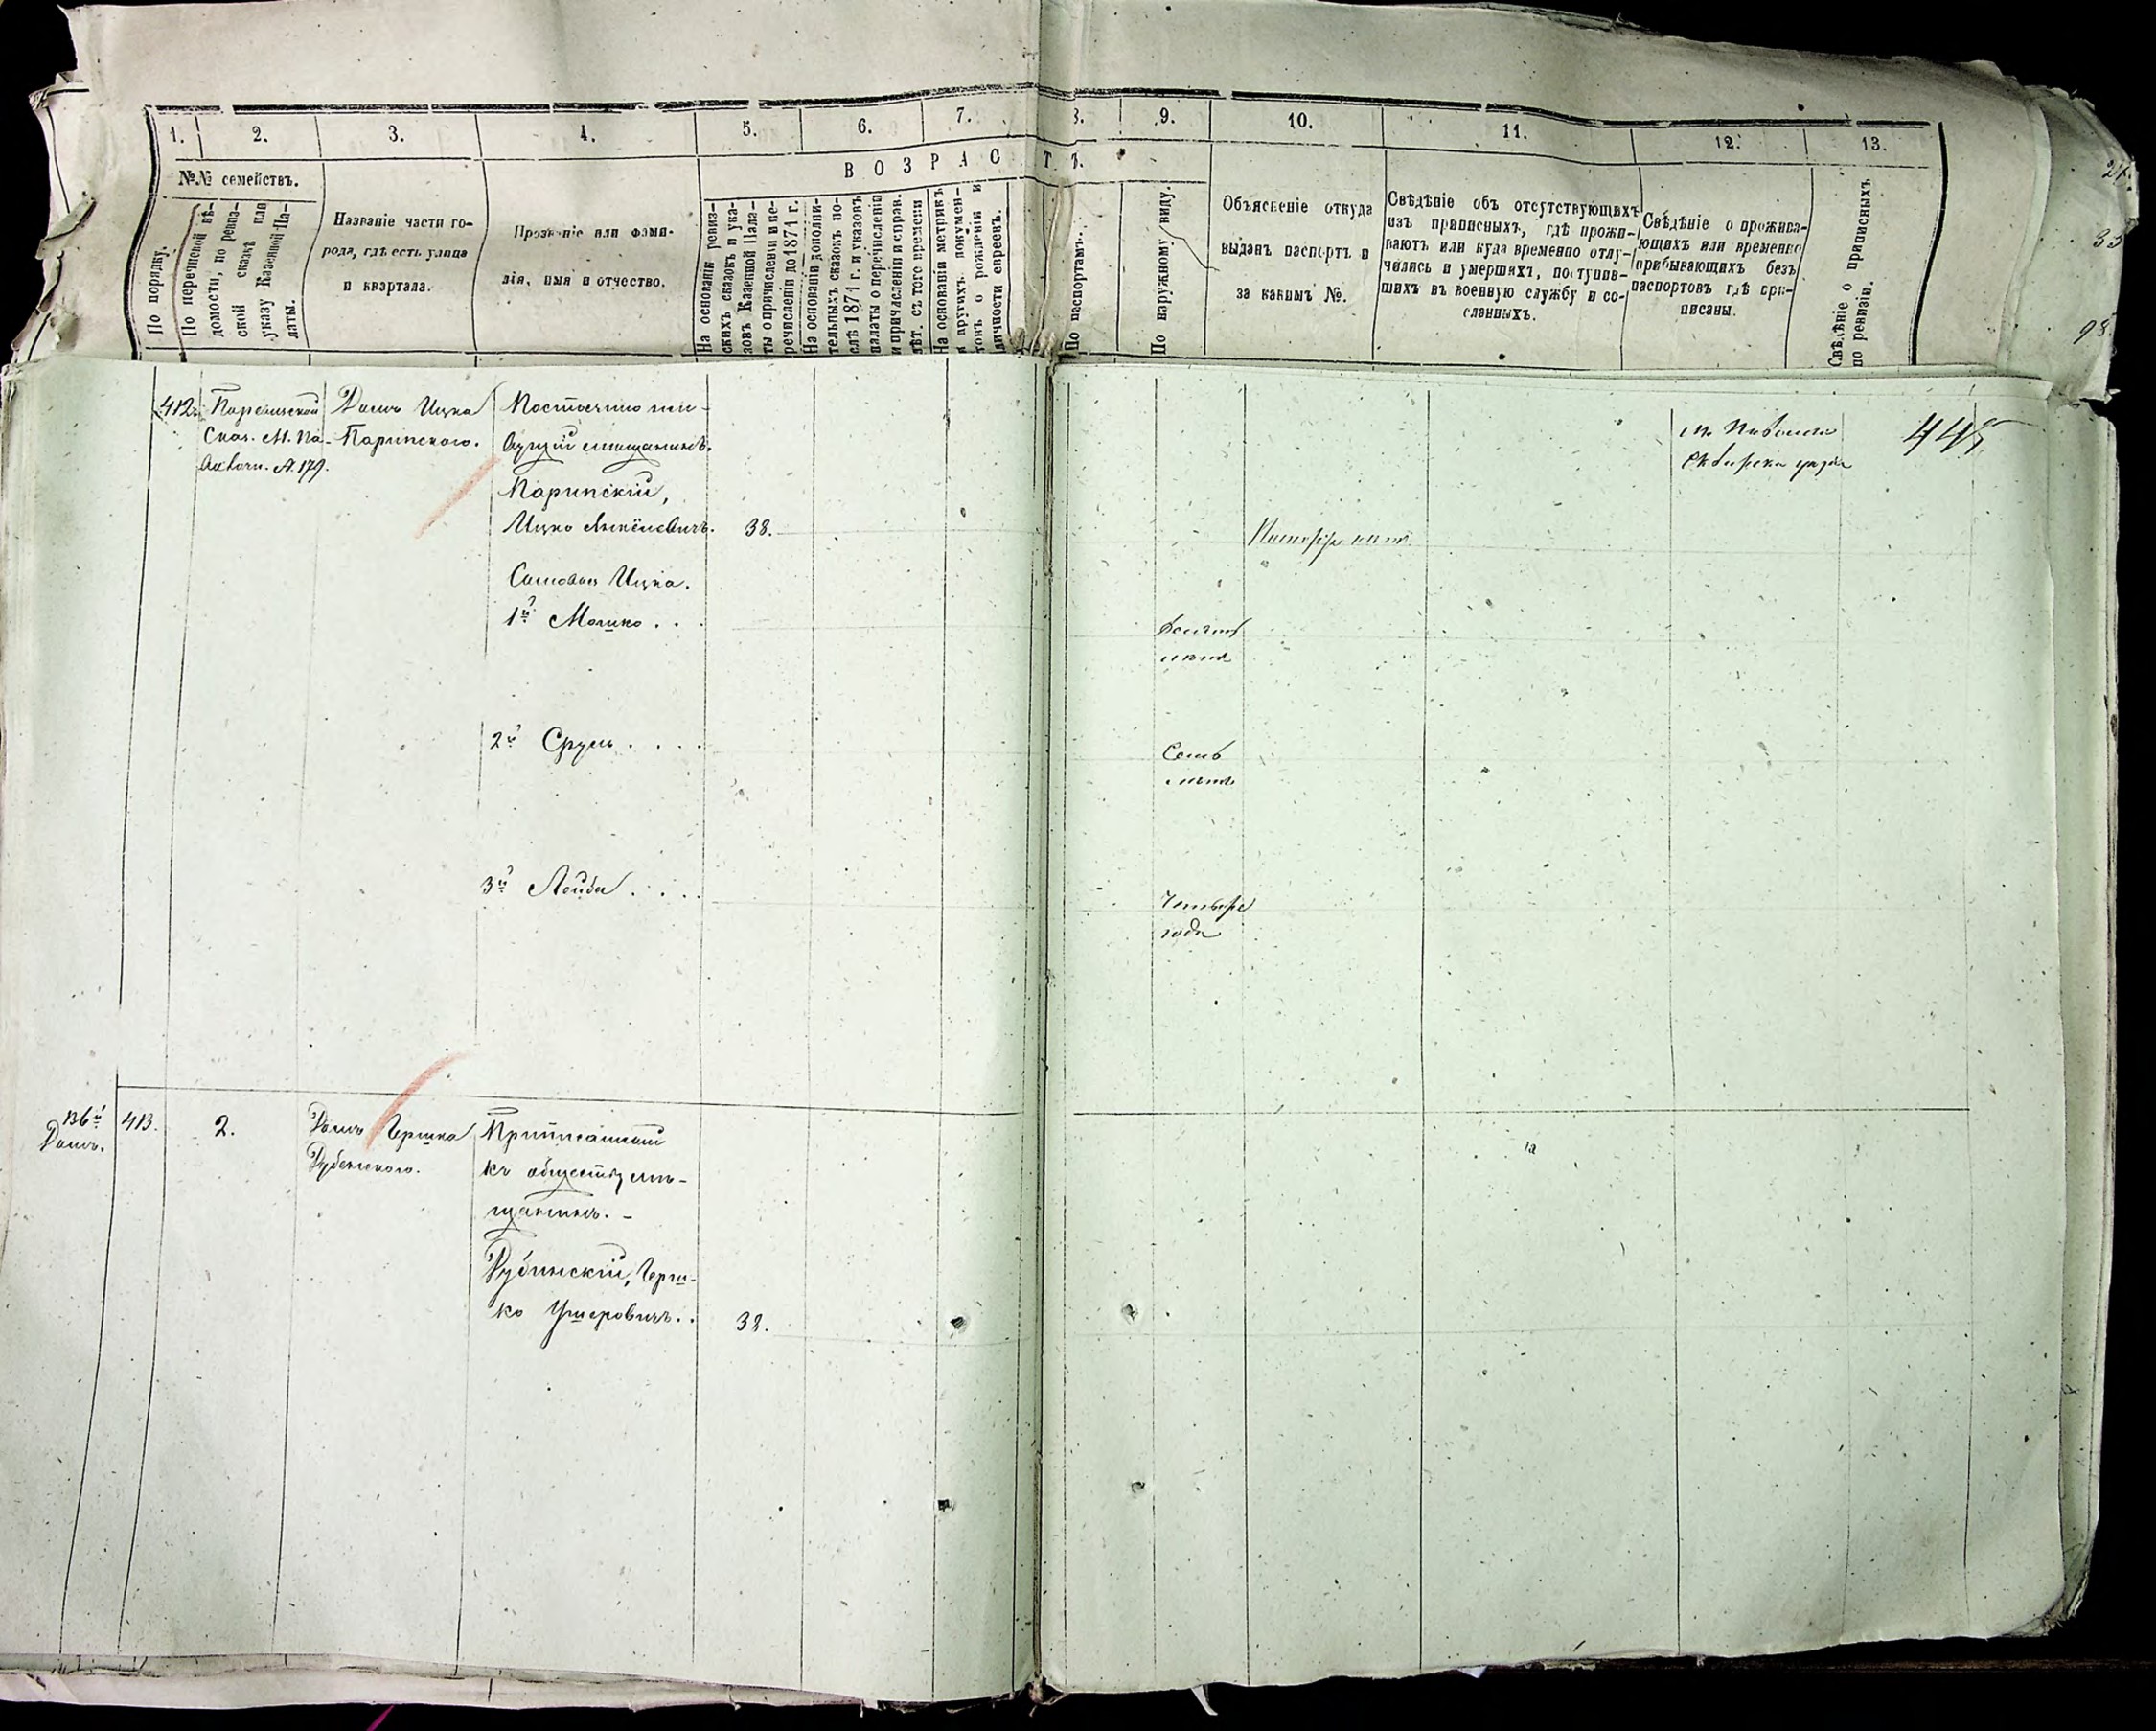 1.
2.
3.
4.
5.
6.
7.
8.
9.
10.
11.
12.
13.
№№ семействъ.
По порядку.
По перечневой вѣ-
домости, по ревиз-
ской сказкѣ или
указу Казенной Па-
латы.
Названіе части го-
рода, гдѣ есть улица
и квартала.
Прозваніе или фами-
лія, имя и отчество.
ВОЗРАСТЪ.
На основаніи ревиз-
скихъ сказокъ и ука-
зовъ Казенной Пала-
ты о причисленіи и пе-
речисленіи до 1871 г.
На основаніи дополни-
тельныхъ сказокъ по-
слѣ 1871 г. и указовъ
палаты о перечисленіи
и причисленіи и справ.
лѣт. съ того времени
На основаніи метрикъ
и другихъ докумен-
товъ о рожденіи и
личности евреевъ.
По паспортамъ.
По наружному виду.
Объясненіе откуда
выданъ паспортъ и
за какимъ №.
Свѣдѣніе объ отсутствующихъ
изъ приписныхъ, гдѣ прожи-
ваютъ или куда временно отлу-
чились и умершихъ, поступив-
шихъ въ военную службу и со-
сланныхъ.
Свѣдѣніе о прожива-
ющихъ или временно
прибывающихъ безъ
паспортовъ гдѣ при-
писаны.
Свѣдѣніе о приписныхъ
по ревизіи.
412.
Сказ. М. Па-
волочи. №. 179.
Домъ Ицка
Паринского.
Постоянно жи-
вущій мѣщанинъ.
Паринскій,
Ицко
38.
Сыновья Ицка.
1й Мошко . .
2й Сруль . . . .
3й Лейба . . . .
Десять
лѣтъ
Семь
лѣтъ
Четыре
года
м. Паволочь
Сквирск. уѣзда
136й
Домъ.
413.
2.
Домъ Гершка
Дубинского.
Приписанный
къ обществу мѣ-
щанинъ. -
Дубинскій, Герш-
ко Ушеровичъ. .
38.